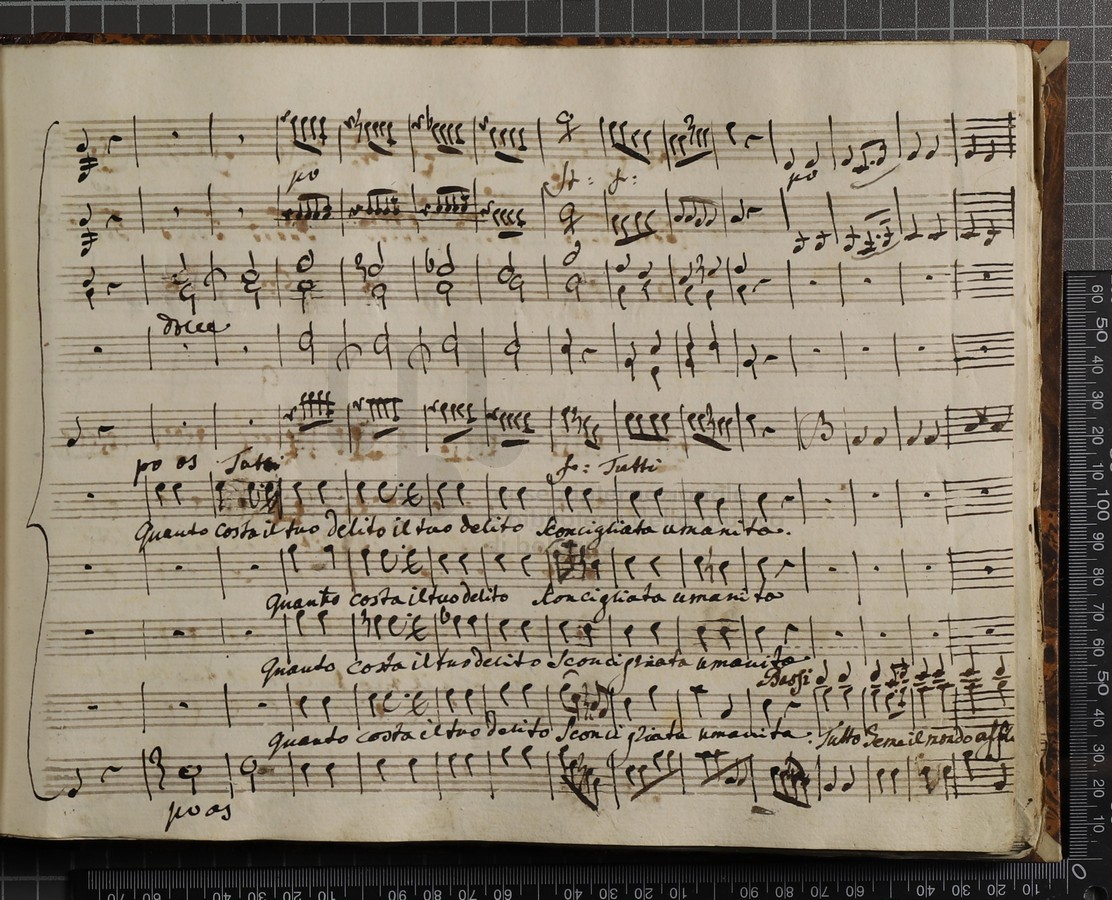 po
f: po
dolce
po os Tutti f: Tutti
Quanto costa il tuo delito il tuo delito Sconcigliata umanita.
Quanto costa il tuo delito Sconcigliata umanita
Quanto costa il tuo delito Sconcigliata umanita
Bassi
Quanto costa il tuo delito Sconcigliata umanita. Tutto Gema il mondo
po os
60 50 40 30 20 10 100 90 80 70 60 50 40 30 20 10 0
70 60 90 80 70 60 40 30 20 10 90 80 70 60 40 30 20 10